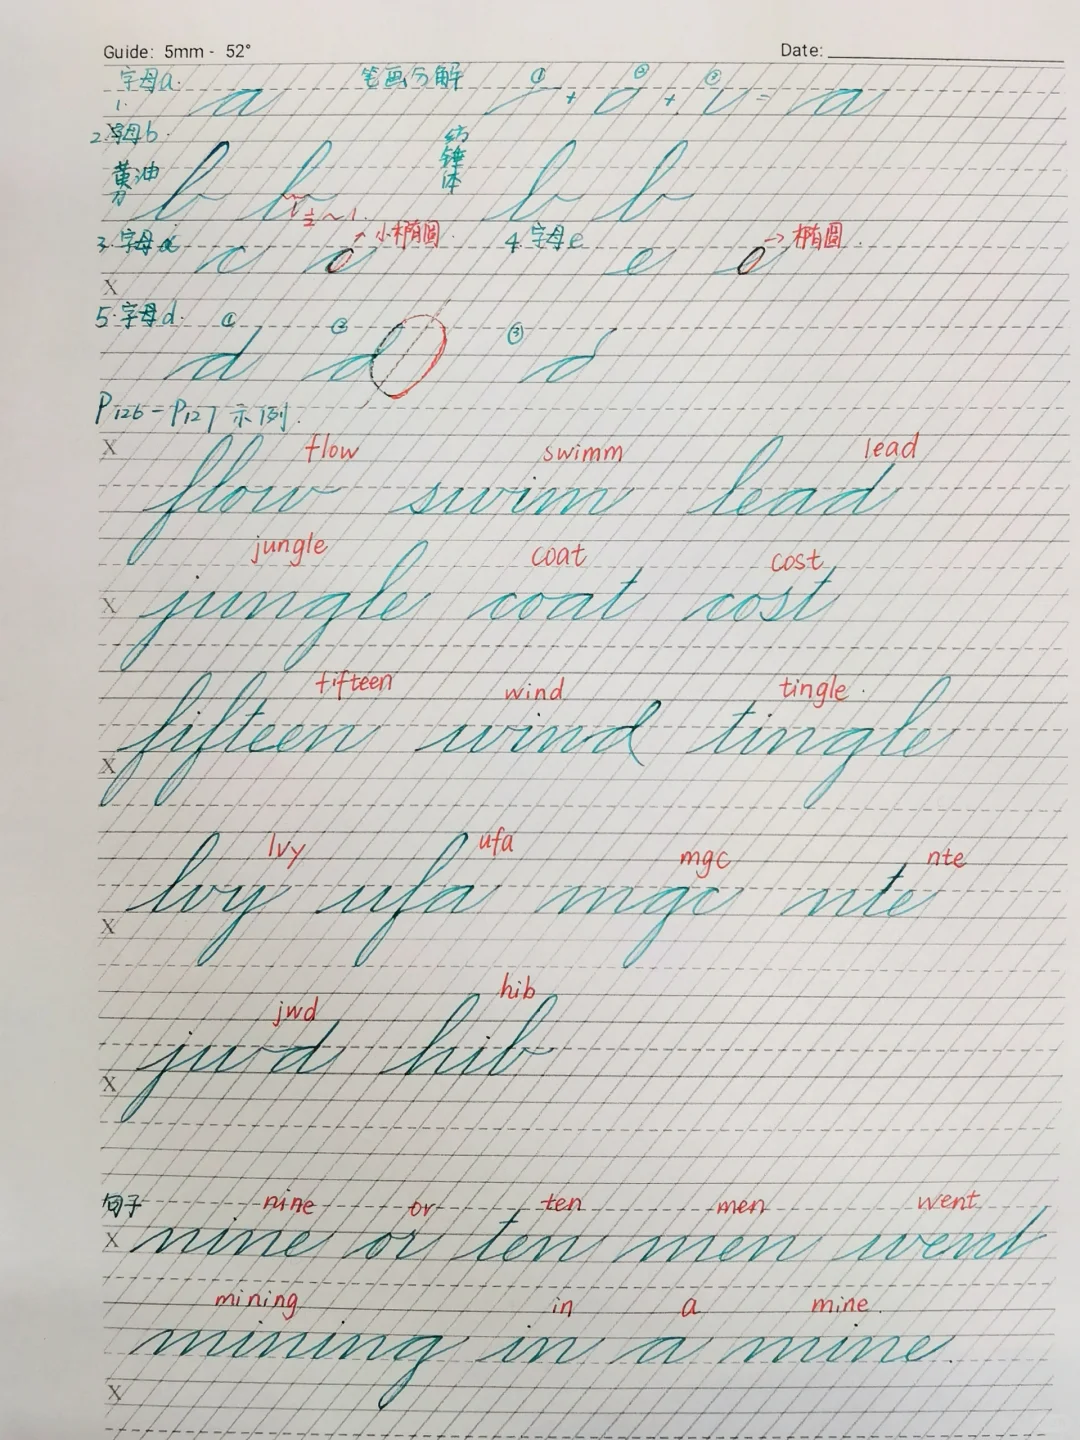 Guide: 5mm - 52° Date:
字母a. 笔画分解 ① ② ③
1. a + + = a
2.字母b.
黄油 b b 纺锤体 b b
½~1.
3.字母c c c 小椭圆. 4.字母e e e → 椭圆
X
5.字母d. ① ② ③
d d d
P126-P127 示例.
X flow swimm lead
flow swim lead
jungle coat cost
X jungle coat cost
fifteen wind tingle.
X fifteen wind tingle
lvy ufa mgc nte
X lvy ufa mgc nte
jwd hib
X jwd hib
句子 nine or ten men went
X nine or ten men went
mining in a mine.
mining in a mine.
X